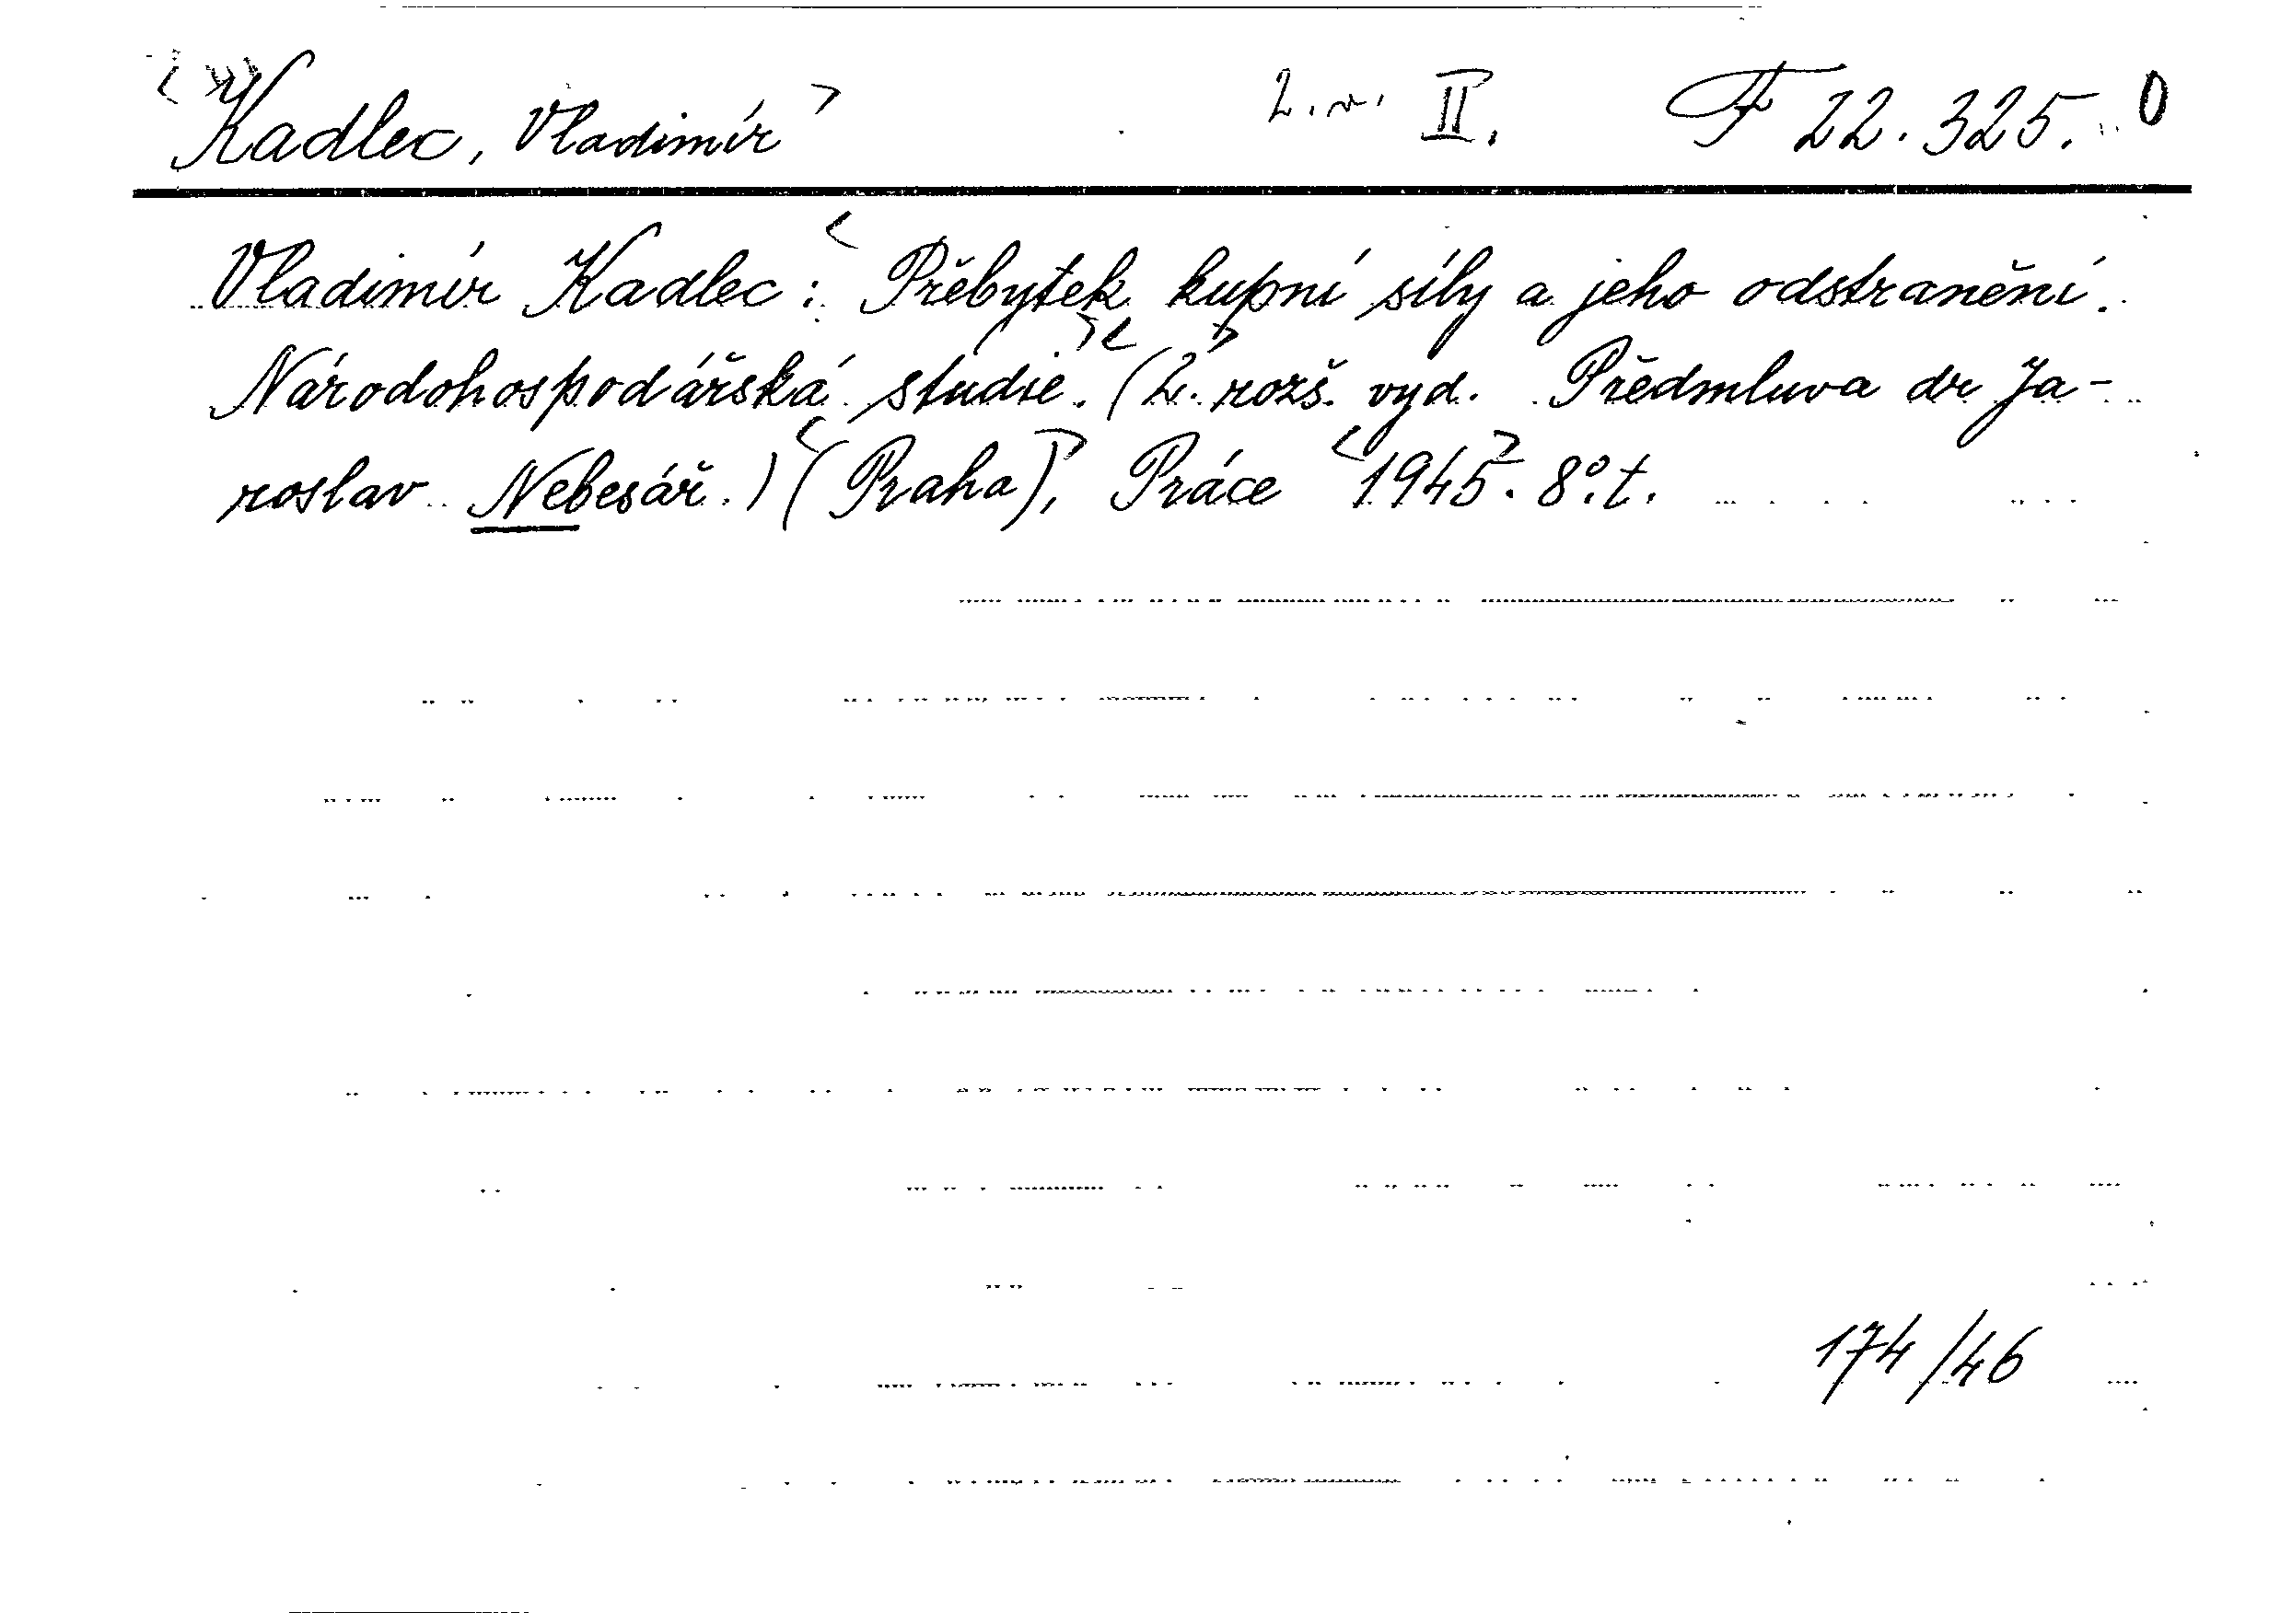 Kadlec, Vladimír 2. v. II. F 22.325. 0
Vladimír Kadlec: Přebytek kupní síly a jeho odstranění.
Národohospodářská studie. (2. rozš. vyd. Předmluva dr Ja-
roslav Nebesář.) (Praha), Práce 1945. 8°. t.
174/46